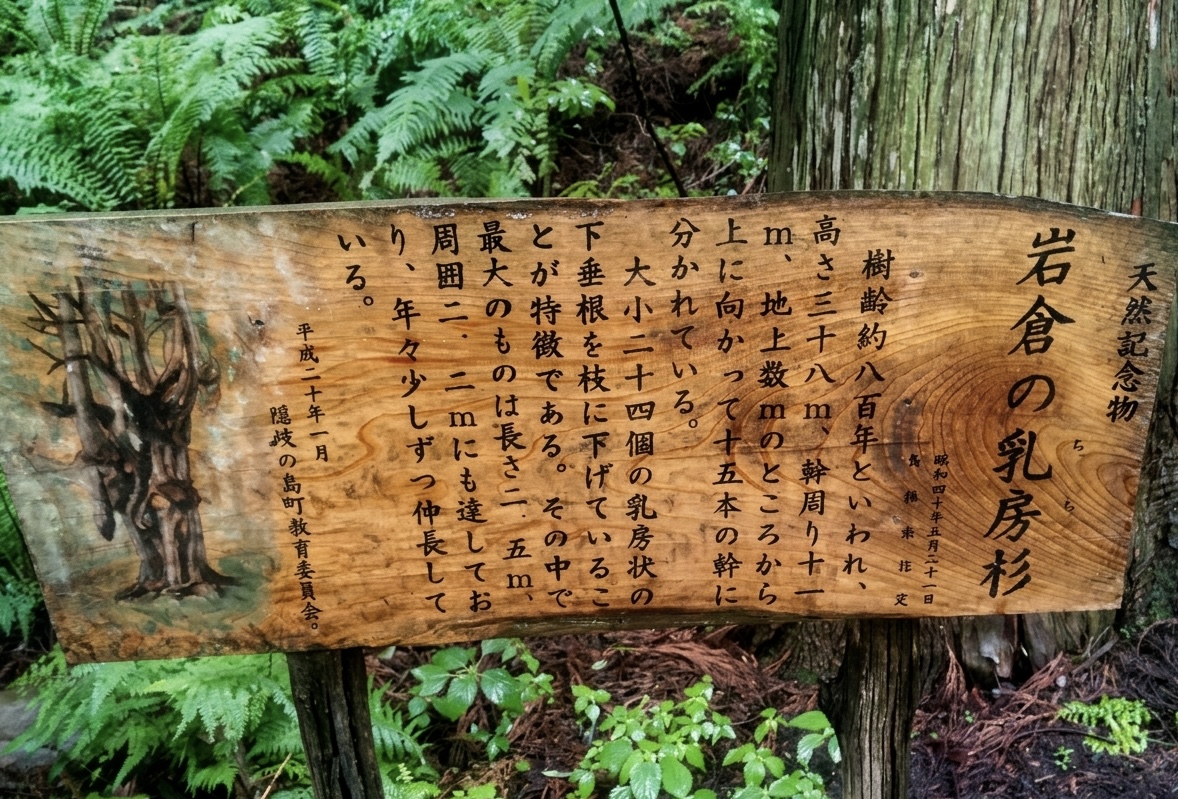 天然記念物
岩倉の乳房杉
ちち
昭和四十年五月二十一日
樹齢約八百年といわれ、
高さ三十八m、幹周り十一
m、地上数mのところから
上に向かって十五本の幹に
分かれている。
大小二十四個の乳房状の
下垂根を枝に下げているこ
とが特徴である。その中で
最大のものは長さ二.五m、
周囲二.二mにも達してお
り、年々少しずつ伸長して
いる。
平成二十年一月
隠岐の島町教育委員会。